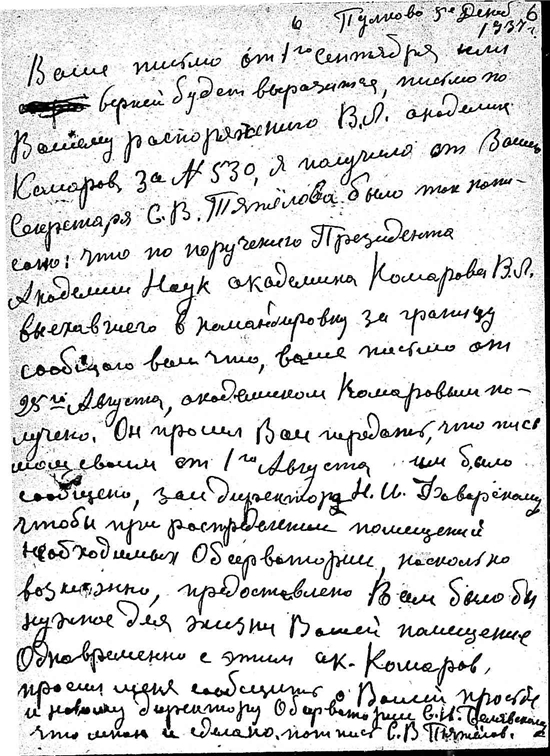 6 Пулково 5го Декаб. 6
1937 г.
Ваше письмо от 1го Сентября или
верней будет выразиться, письмо по
Вашему распоряжению В.Л. академик
Комаров за № 530, я получила от Вашего
Секретаря С. В. Тяжёлова было так напи-
сано: что по поручению Президента
Академии Наук академика Комарова В.Л.
выехавшего в командировку за границу
сообщаю вам что, ваше письмо от
25го Августа, академиком Комаровым по-
лучено. Он просил Вам передать, что пись
мом своим от 1го Августа им было
сообщено, зам директору Н. И. Фаворскому
чтобы при распределении помещений
необходимых Обсерватории, насколько
возможно, предоставлено Вам было бы
нужное для жизни Вашей помещение
Одновременно с этим ак. Комаров,
просил меня сообщить о Вашей просьбе
и новому директору Обсерватории С. И. Белявскому
что мною и сделано. подпись С. В Тяжёлов.